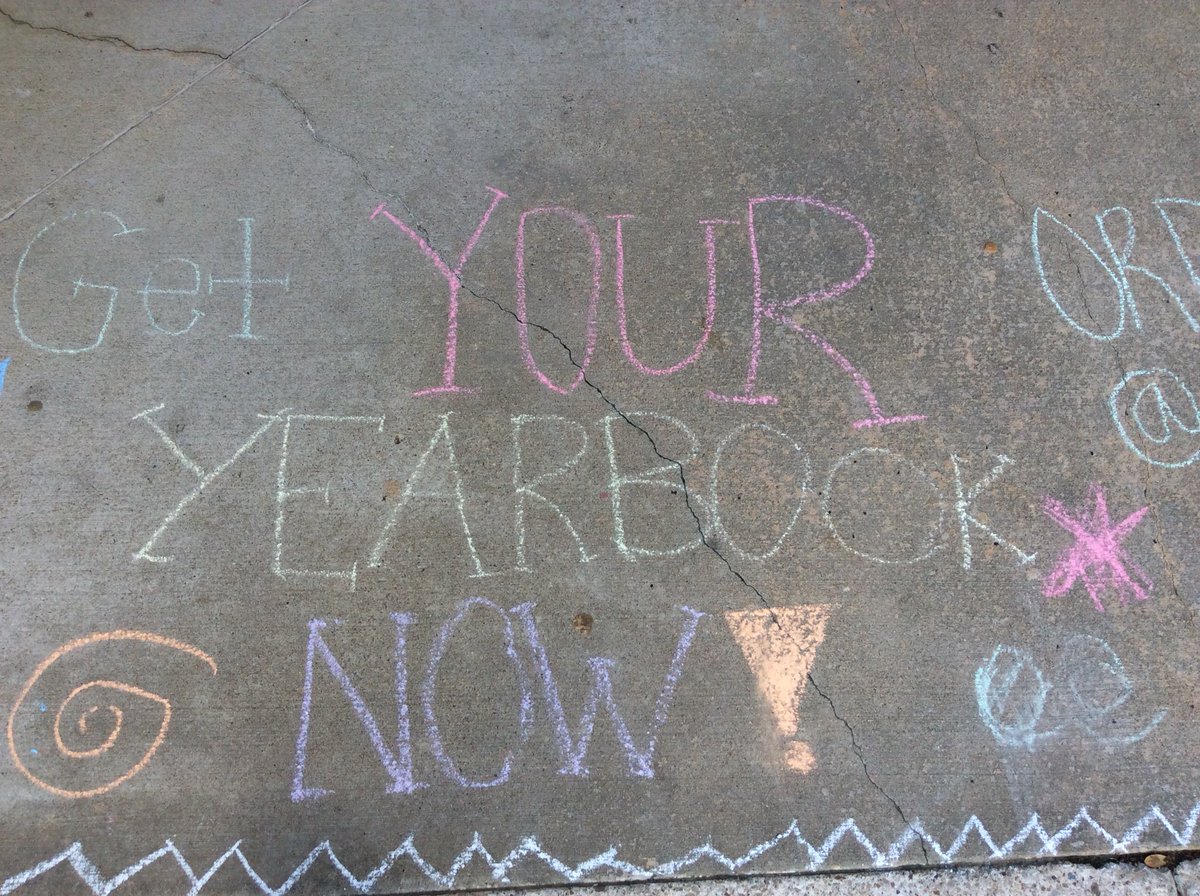 Get YOUR
YEARBOOK
NOW!
@